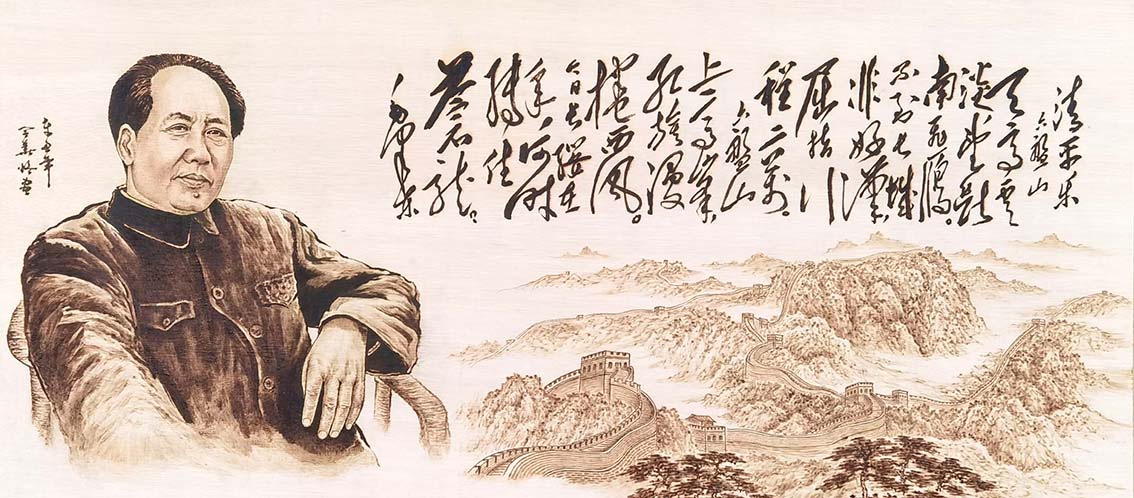 清平乐
六盘山
天高雲
淡,望断
南飛雁。
不到长城
非好漢,
屈指行
程二萬。
六盤山
上高峯,
红旗漫
捲西风。
今日长缨在
手,何时
缚住
蒼龙。
毛泽东